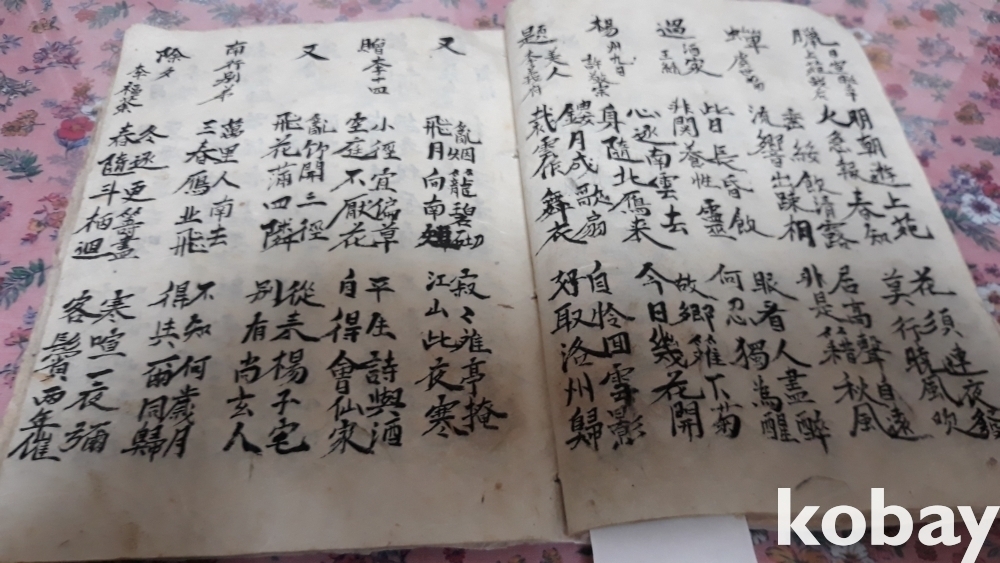 臘
明朝遊上苑
火急報春知
花須連夜發
莫行曉風吹
蟬
虞世南
垂緌飮淸露
流響出踈相
居高聲自遠
非是籍秋風
過酒家
王績
此日長昏飮
非關養性靈
眼看人盡醉
何忍獨爲醒
楊州九日
許敬宗
心逐南雲去
身隨北鴈來
故鄕籬下菊
今日幾花開
題美人
李義府
鏤月成歌扇
裁雲作舞衣
自怜回雪影
好取洛州歸
又
亂烟籠碧砌
飛月向南
寂〻離亭掩
江山此夜寒
贈李十四
小徑宜偏草
空庭不厭花
平生詩與酒
自得會仙家
又
亂竹開三徑
飛花滿四隣
從来楊子宅
別有尚玄人
南行別弟
萬里人南去
三春鴈北飛
不知何歲月
得共爾同歸
除夕
冬逐更籌盡
春隨斗柄廻
寒喧一夜彌
客鬂兩年催
kobay